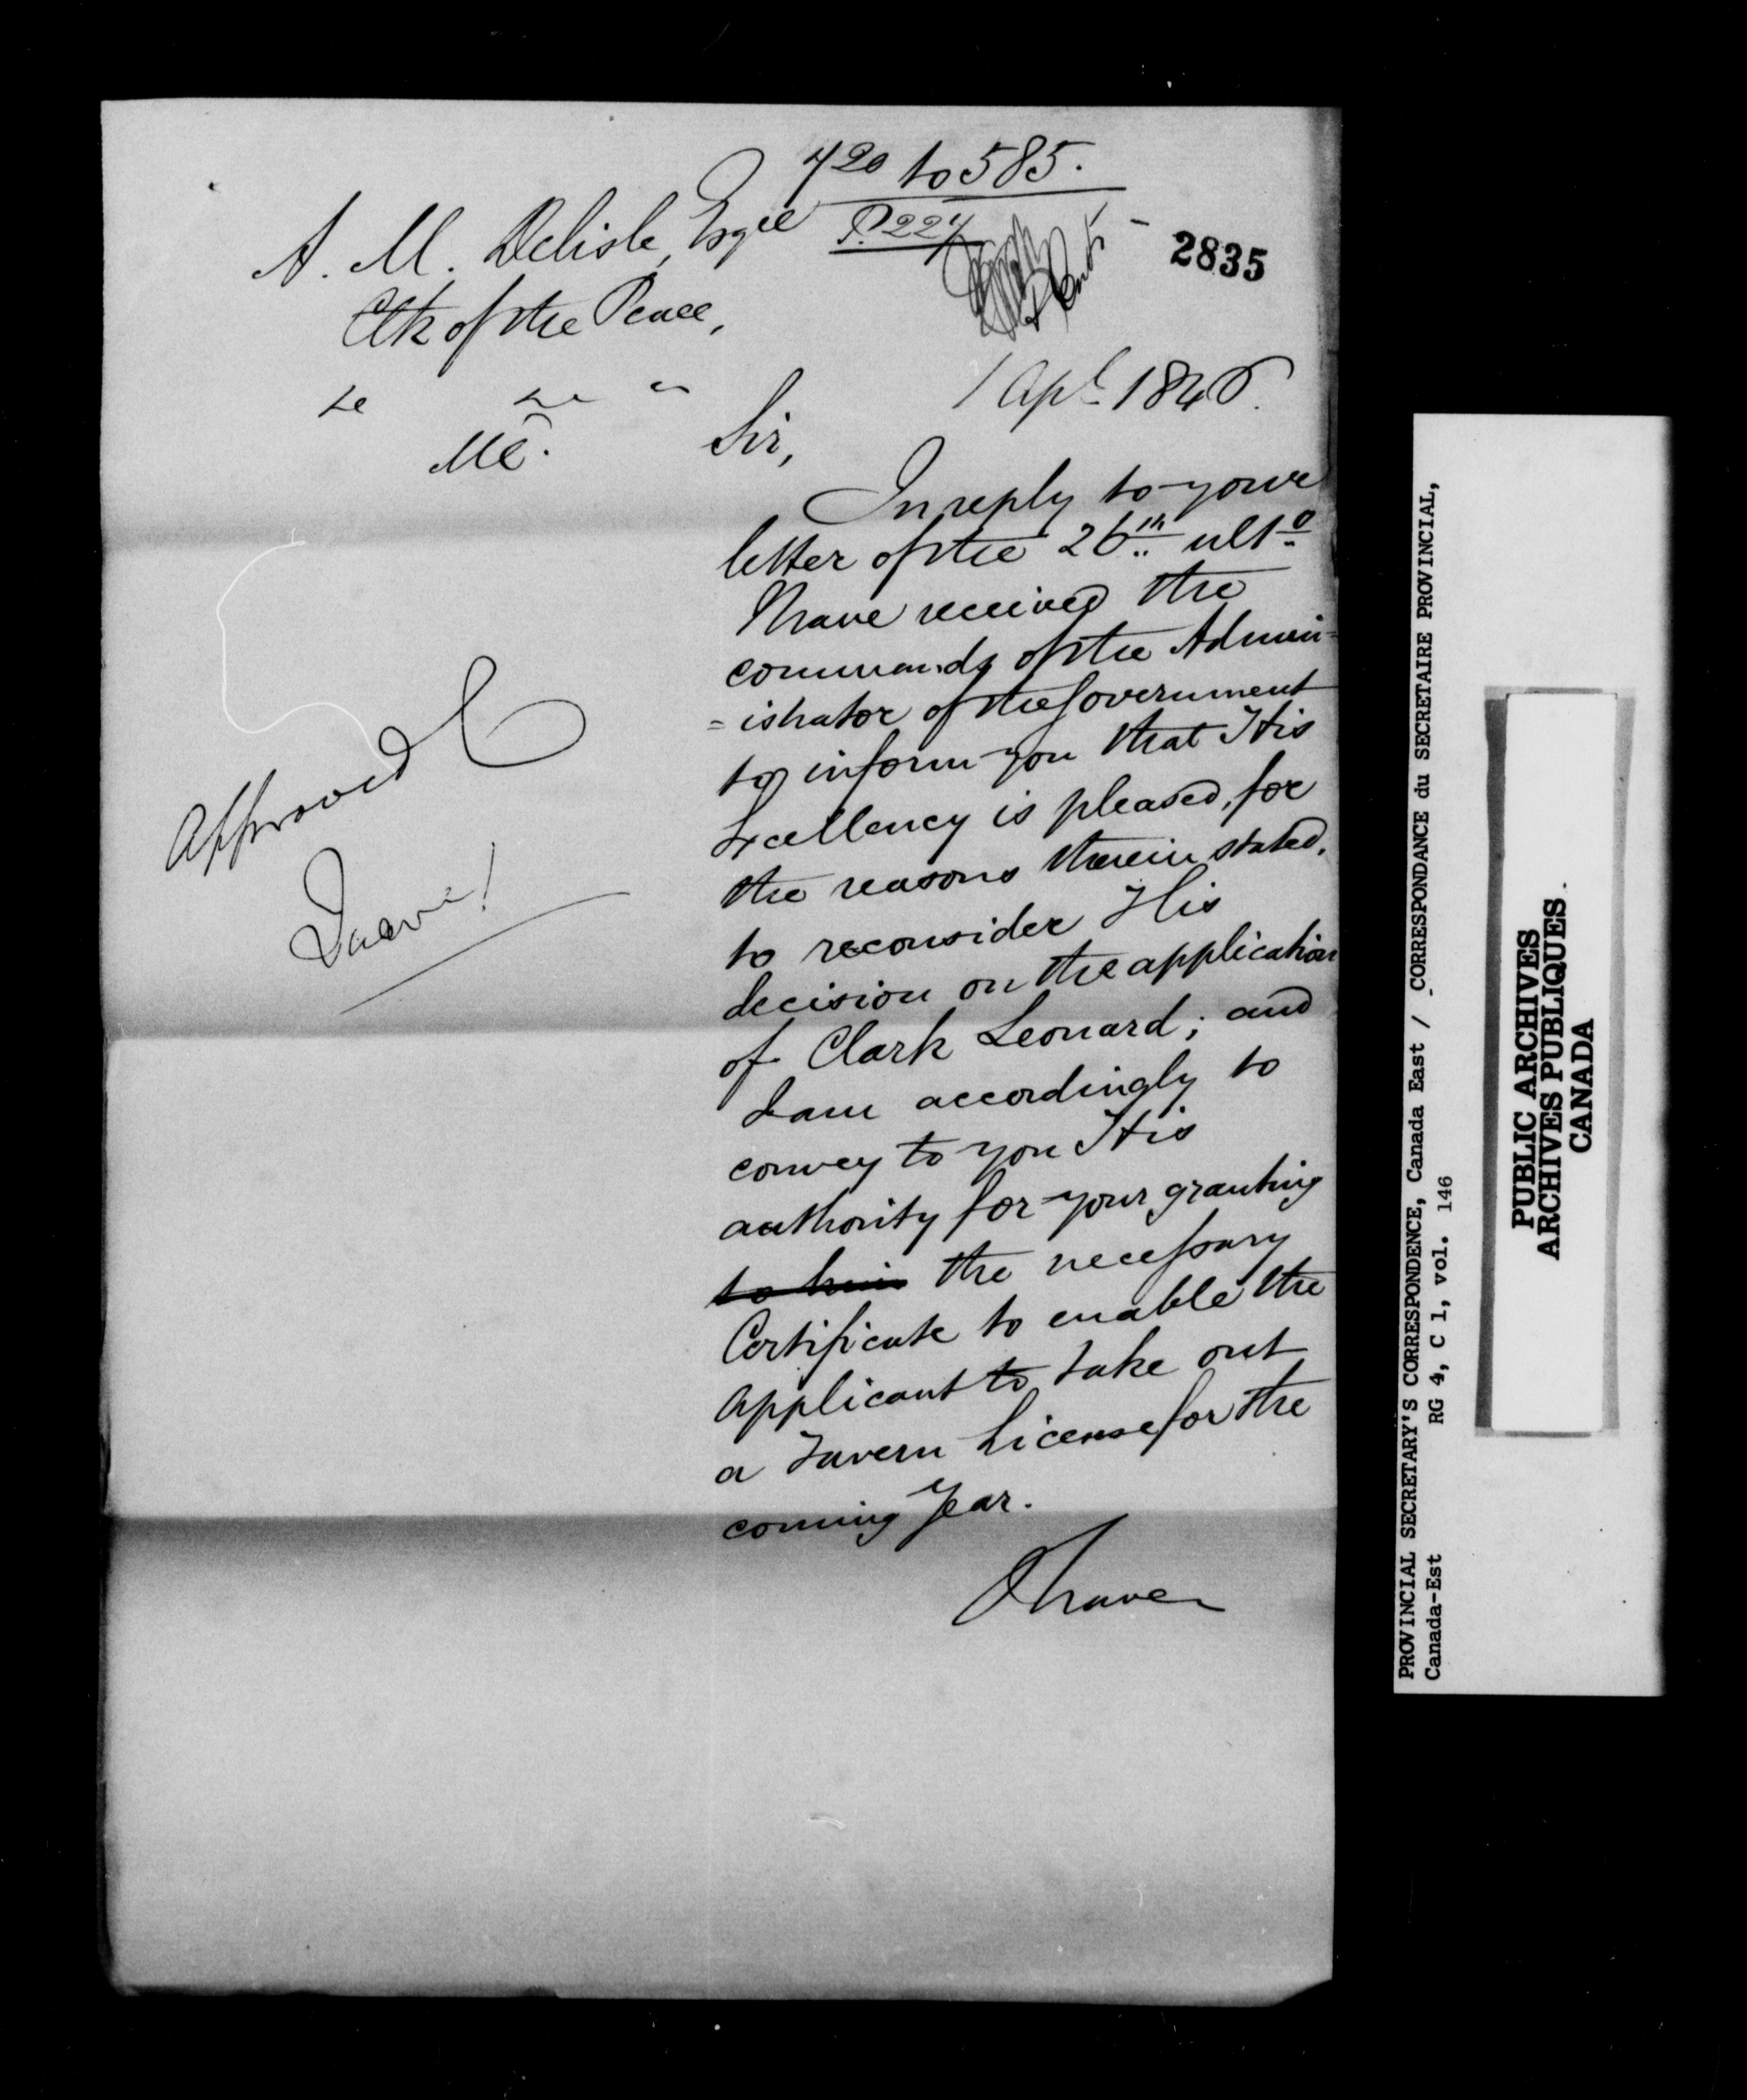 420 to 585.
P. 227
2835
A. M. Delisle, Esqre
Clk of the Peace,
&c &c &c
Ml.
1 Apl 1846.
Sir,
In reply to your
letter of the 26th ulto
I have received the
commands of the Admin=
=istrator of the Government
to inform you that His
Excellency is pleased, for
the reasons therein stated,
to reconsider His
decision on the application
of Clark Leonard; and
I am accordingly to
convey to you His
authority for your granting
to him the necessary
Certificate to enable the
applicant to take out
a Tavern License for the
coming Year.
I have
Approved
PROVINCIAL SECRETARY'S CORRESPONDENCE, Canada East / CORRESPONDANCE du SECRETAIRE PROVINCIAL,
Canada-Est RG 4, C 1, vol. 146
PUBLIC ARCHIVES
ARCHIVES PUBLIQUES
CANADA